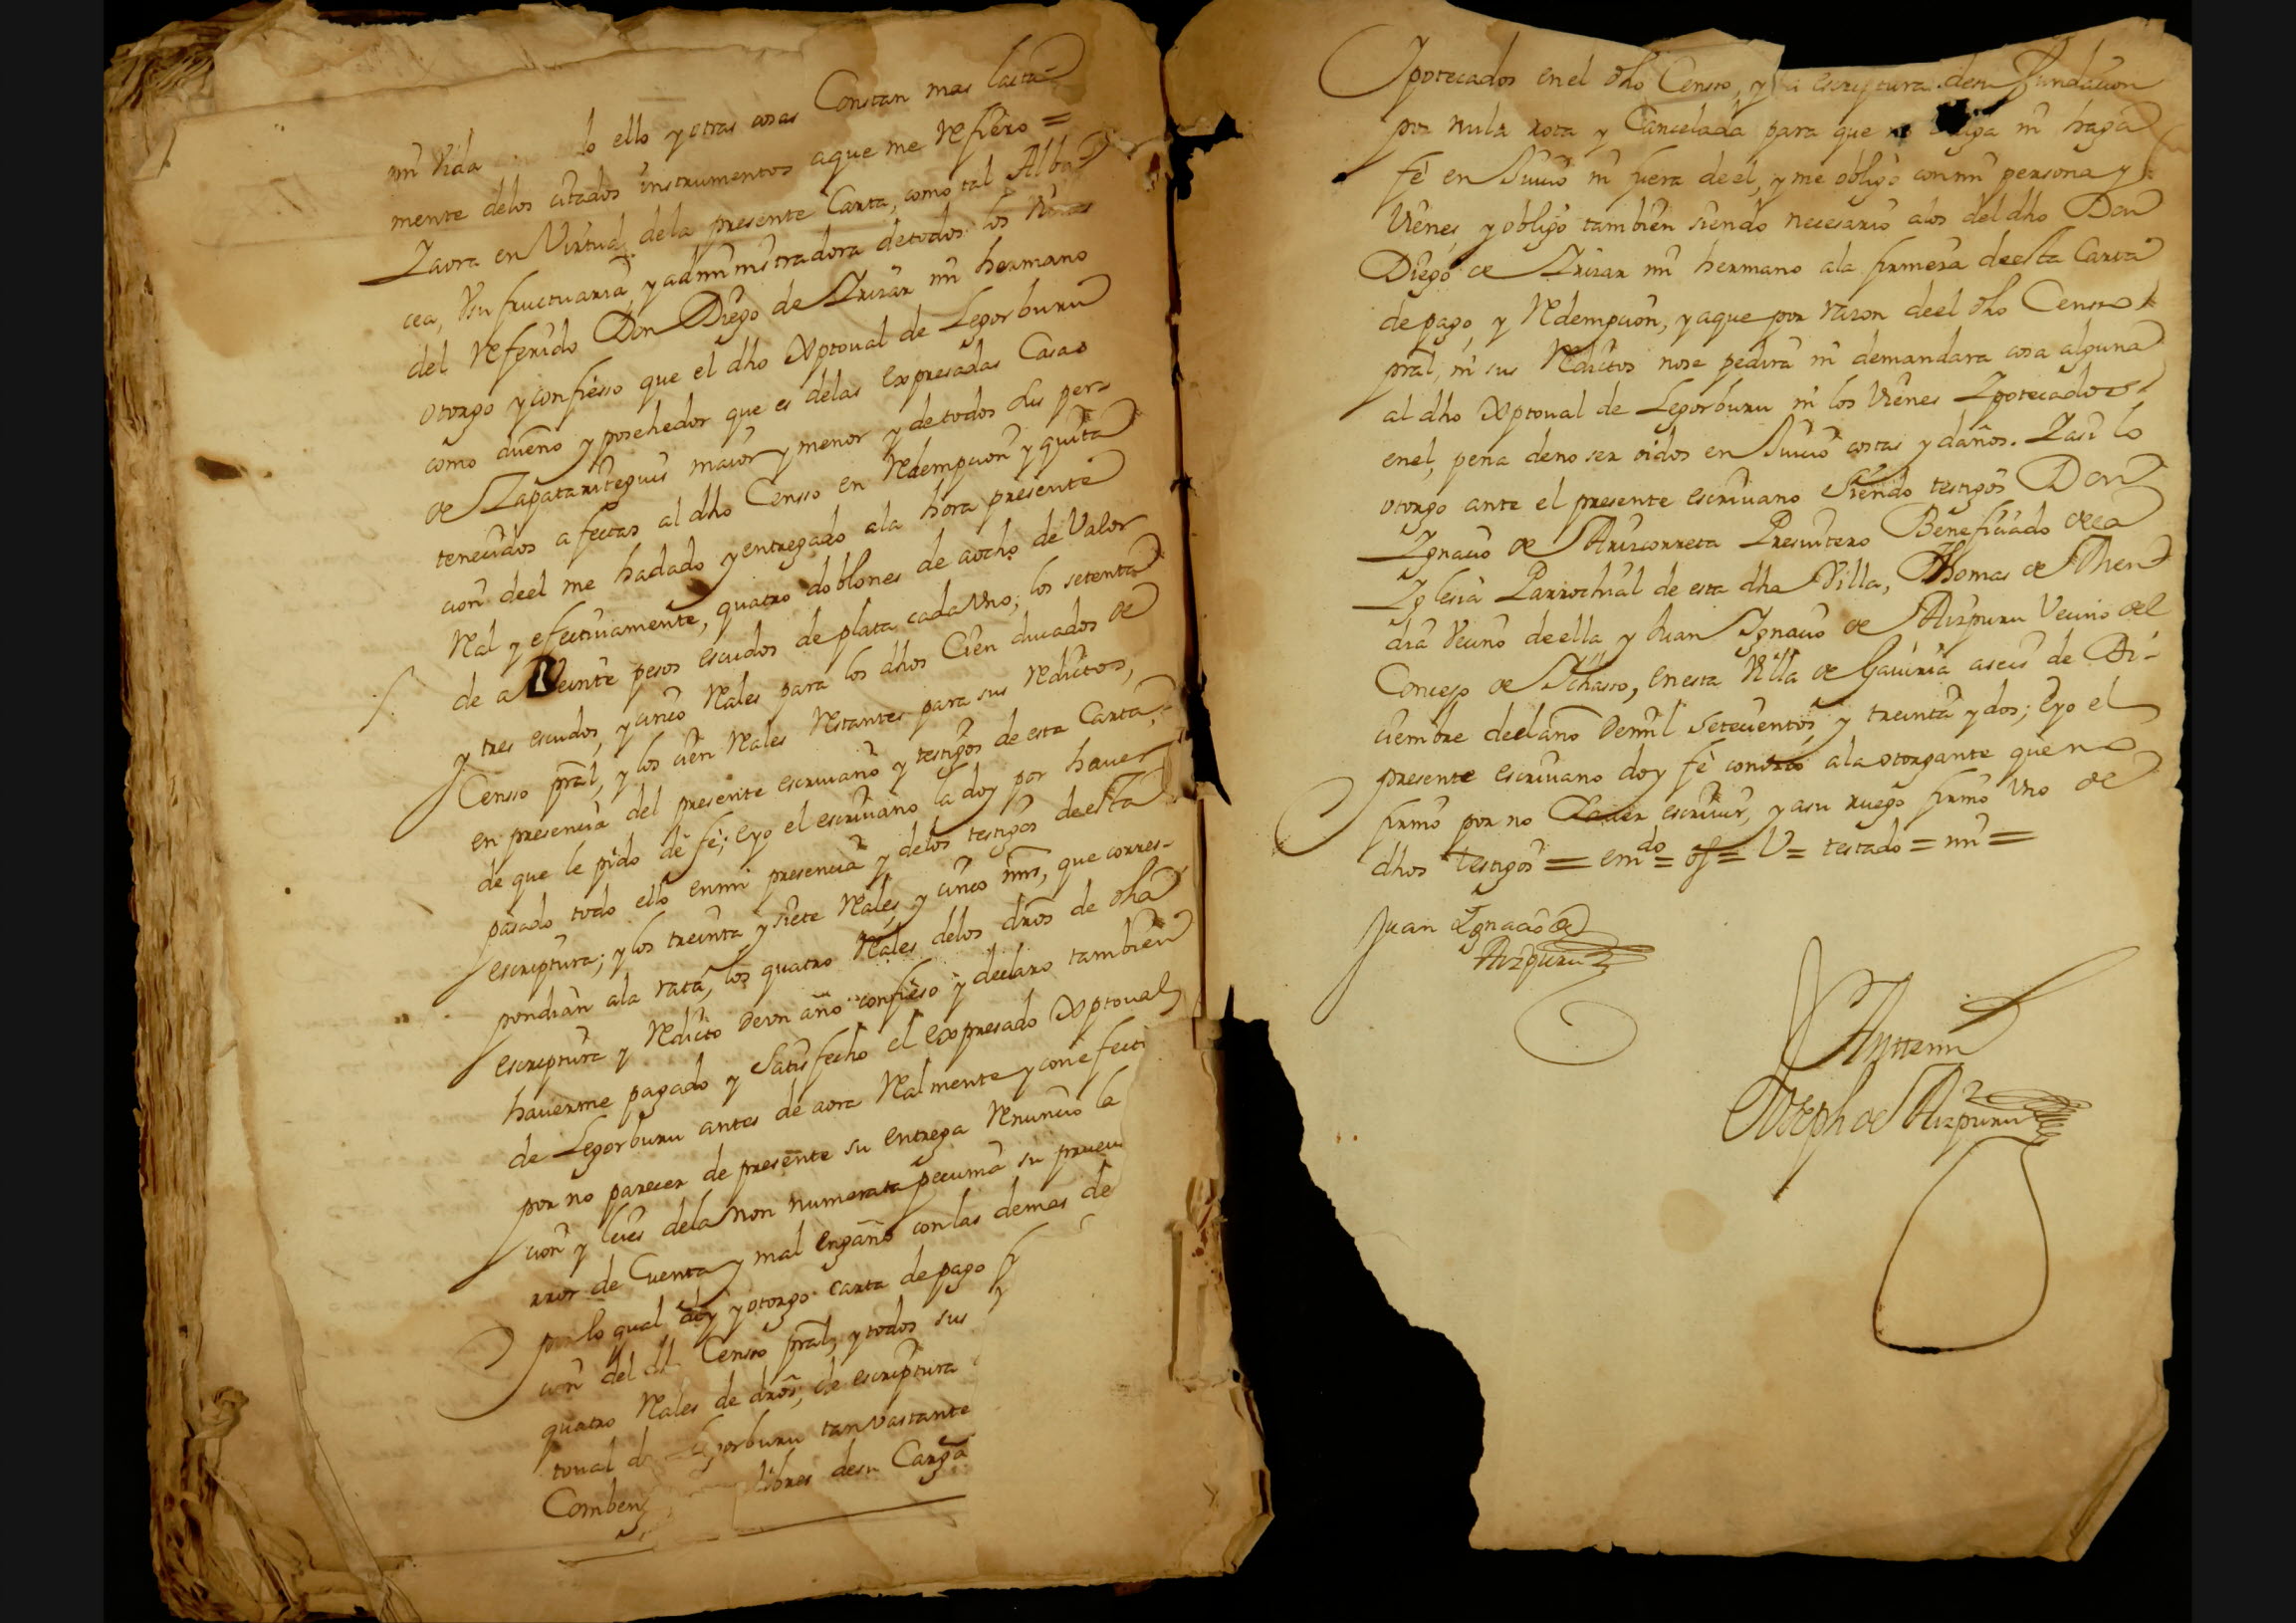 mi vida lo ello y otras cosas Constan mas larta-
mente delos citados instrumentos aque me Refiero =
Yaora en Virtud dela presente Carta, como tal Alba
cea, Usufructuaria, y administradora detodos los vienes
del Referido Don Diego de Irizar mi hermano
otorgo y confiesso que el dho Xptoual de Legorburu
como dueño y posehedor que es delas Expresadas Casas
de Zapatariteguis maior y menor y detodos sus per-
tenecidos afectas al dho Censso en Redempcion y quita
cion deel me hadado y entregado ala hora presente
Real y efectiuamente, quatro doblones de aocho de Valor
de a Veinte pesos escudos de plata cada Vno; los setenta
y tres escudos, y cinco Reales para los dhos Cien ducados de
Censso pral, y los cien Reales Restantes para sus Reditos,
en presencia del presente escriuano y testigos de esta Carta,
de que le pido de fé; Eyo el escriuano la doy por hauer
pasado todo ello enmi presencia y delos testigos deesta
escriptura; y los treinta y siete Reales y cinco mrs, que corres-
pondian ala rata, los quatro Reales delos dros de dha
escriptura y Redito devn año confieso y declaro tambien
hauerme pagado y Satisfecho el Expresado Xptoual
de Legorburu antes de aora Realmente y con efecti
por no parecer de presente su entrega Renuncio la
cion y leies dela non numerata pecunia su prueu
rror de Cuenta y mal engaño con las demas de
por lo qual doy y otorgo carta de pago
cion del dh Censso pral, y todos sus
quatro Reales de dros, de escriptura
toual de Legorburu tan vastante
Comben libres desu Carga
Ypotecados enel dho Censso, y la escriptura desu fundacion
por nula rota y Cancelada para que no valga ni haga
fé en Juicio ni fuera deel, y me obligo con mi persona y
vienes, y obligo tambien siendo necesario alos del dho Don
Diego de Irizar mi hermano ala firmeza deesta Carta
de pago, y Redempcion, y aque por razon deel dho Censso
pral, ni sus Reditos nose pedira ni demandara cosa alguna
al dho Xptoual de Legorburu ni los vienes Ypotecados
enel, pena deno ser oidos en Juicio costas y daños. Yasi lo
otorgo ante el presente escriuano Siendo testigos Don
Ignacio de Arizcorreta Presuitero Beneficiado dela
Yglesia Parrochial de esta dha Villa, Thomas de Men
dia vecino deella y Juan Ignacio de Aizpuru Vecino del
Concejo de Ichasso, en esta Villa de Gauiria aseis de Di-
ciembre deelaño demil setecientos y treinta y dos; Eyo el
presente escriuano doy fé conozco ala otorgante que no
firmo por no Sauer escriuir, y asu ruego firmo vno de
dhos testigos = emdo = of = V = testado = mi =
Juan Ignacio de
Aizpuru
Anttemi
Joseph de Aizpuru